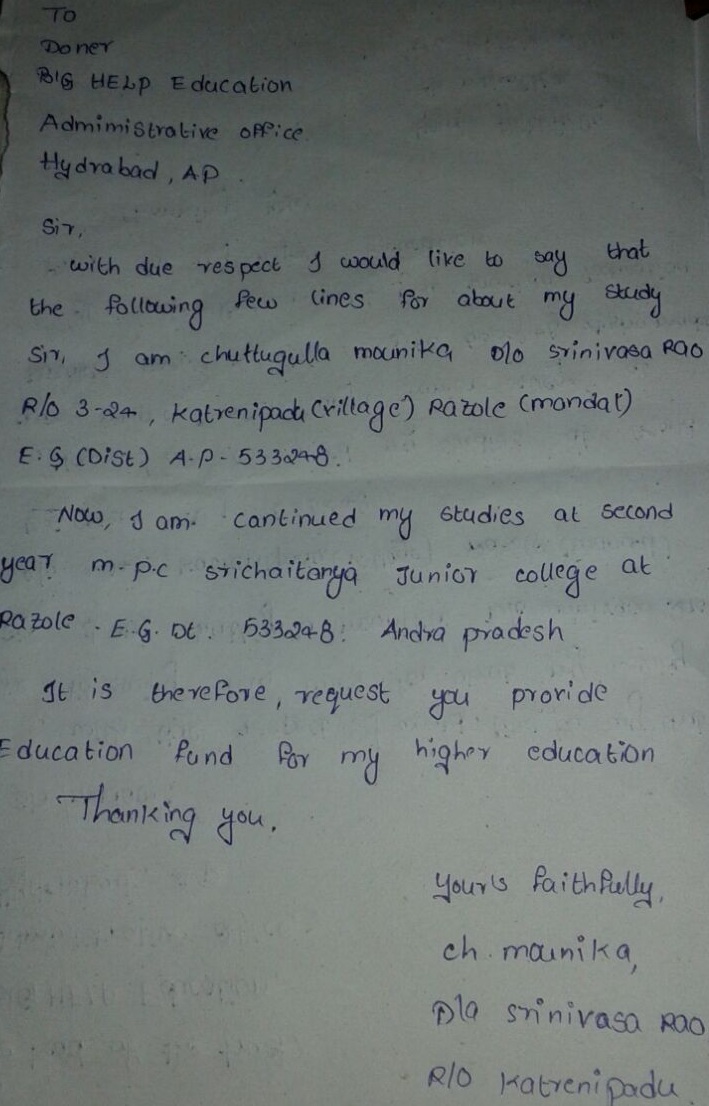 To
Doner
BIG HELP Education
Admimistrative office
Hydrabad, AP.
Sir,
with due respect I would like to say that
the following few lines for about my study
Sir, I am chuttugulla mounika D/o srinivasa Rao
R/o 3-24, Katrenipadu (village) Razole (mandal)
E.G (Dist) A.P- 533248.
Now, I am continued my studies at second
year m.p.c srichaitanya Junior college at
Razole. E.G. Dt. 533248. Andra pradesh.
It is therefore, request you provide
Education fund for my higher education
Thanking you.
Your's faithfully,
ch. mounika,
D/o srinivasa Rao
R/o Katrenipadu.